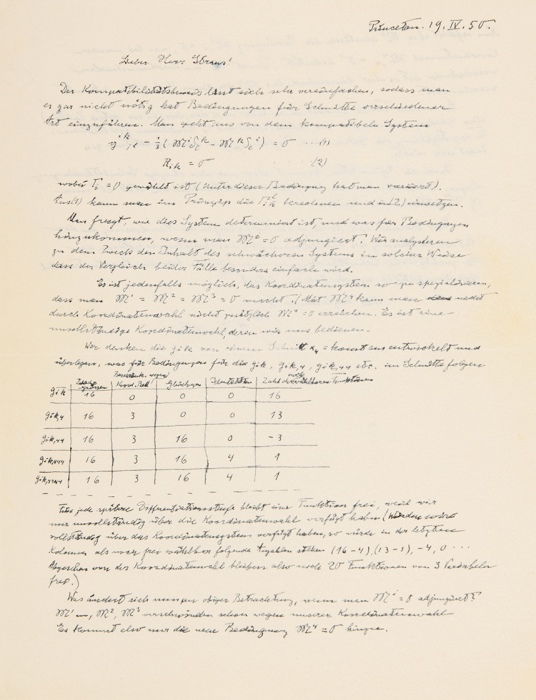 Princeton. 19. IV. 50.
Lieber Herr Straus!
Der Kompatibilitätsbeweis lässt sich sehr vereinfachen, sodass man
es gar nicht nötig hat Bedingungen für Schnitte verschiedener
Art einzuführen. Man geht aus von dem kompatibeln System
= 0 ... (1)
R_{ik} = 0 (2)
wobei = 0 gewählt ist (Unter dieser Bedingung hat man variiert).
Aus (1) kann man im Prinzip die Γ berechnen und in (2) einsetzen.
Man fragt, wie dies System determiniert ist, und was für Bedingungen
hinzukommen, wenn man = 0 adjungiert? Wir analysieren
zu dem Zweck den Inhalt des schwächeren Systems in solcher Weise
dass der Vergleich beider Fälle besonders einfach wird.
Es ist jedenfalls möglich, das Koordinatensystem so zu spezialisieren,
dass man 𝔐¹ = 𝔐² = 𝔐³ = 0 macht. (Mit 𝔐⁴ kann man
durch Koordinatenwahl nicht zusätzlich zu erreichen. Es ist eine
unvollständige Koordinatenwahl, deren wir uns bedienen.
Wir denken die g_{ik} von einem Schnitt x₄ = konst aus entwickelt und
überlegen, was für Bedingungen für die g_{ik}, g_{ik,4}, g_{ik,44} etc. im Schnitte folgen
Koord. Wahl Gleichungen Identitäten Zahl der
g_{ik} 16 0 0 0 16
g_{ik,4} 16 3 0 0 13
g_{ik,44} 16 3 16 0 -3
g_{ik,444} 16 3 16 4 1
g_{ik,4444} 16 3 16 4 1
Für jede spätere Differentiationsstufe bleibt eine Funktion frei, weil wir
nur unvollständig über die Koordinatenwahl verfügt haben (Würden wir
vollständig über das Koordinatensystem verfügt haben, so würde in der letzten
Kolonne als noch frei wählbar folgende Angaben stehen (16-4), (13-1), -4, 0 ...
Abgesehen von der Koordinatenwahl bleiben also noch 20 Funktionen von 3 Variabeln
frei.)
Was ändert sich nun an obiger Betrachtung, wenn man = 0 adjungiert?
𝔐¹, 𝔐², 𝔐³ verschwinden schon wegen unserer Koordinatenwahl
Es kommt also nur die neue Bedingung 𝔐⁴ = 0 hinzu.